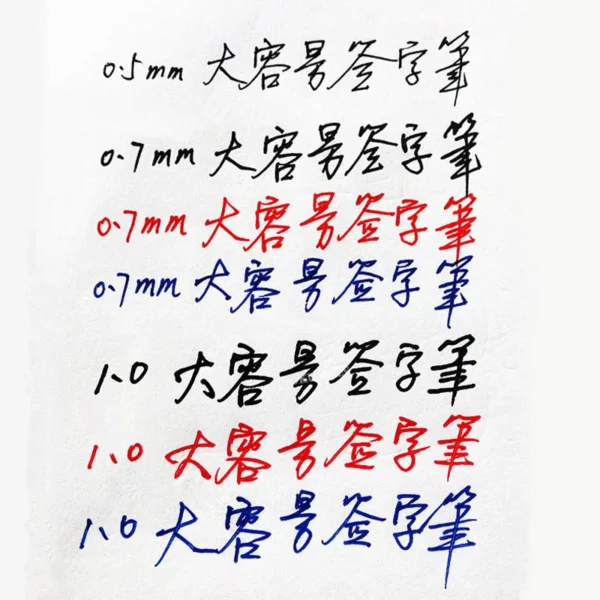 0.5mm 大容量签字筆
0.7mm 大容量签字筆
0.7mm 大容量签字筆
0.7mm 大容量签字筆
1.0 大容量签字筆
1.0 大容量签字筆
1.0 大容量签字筆